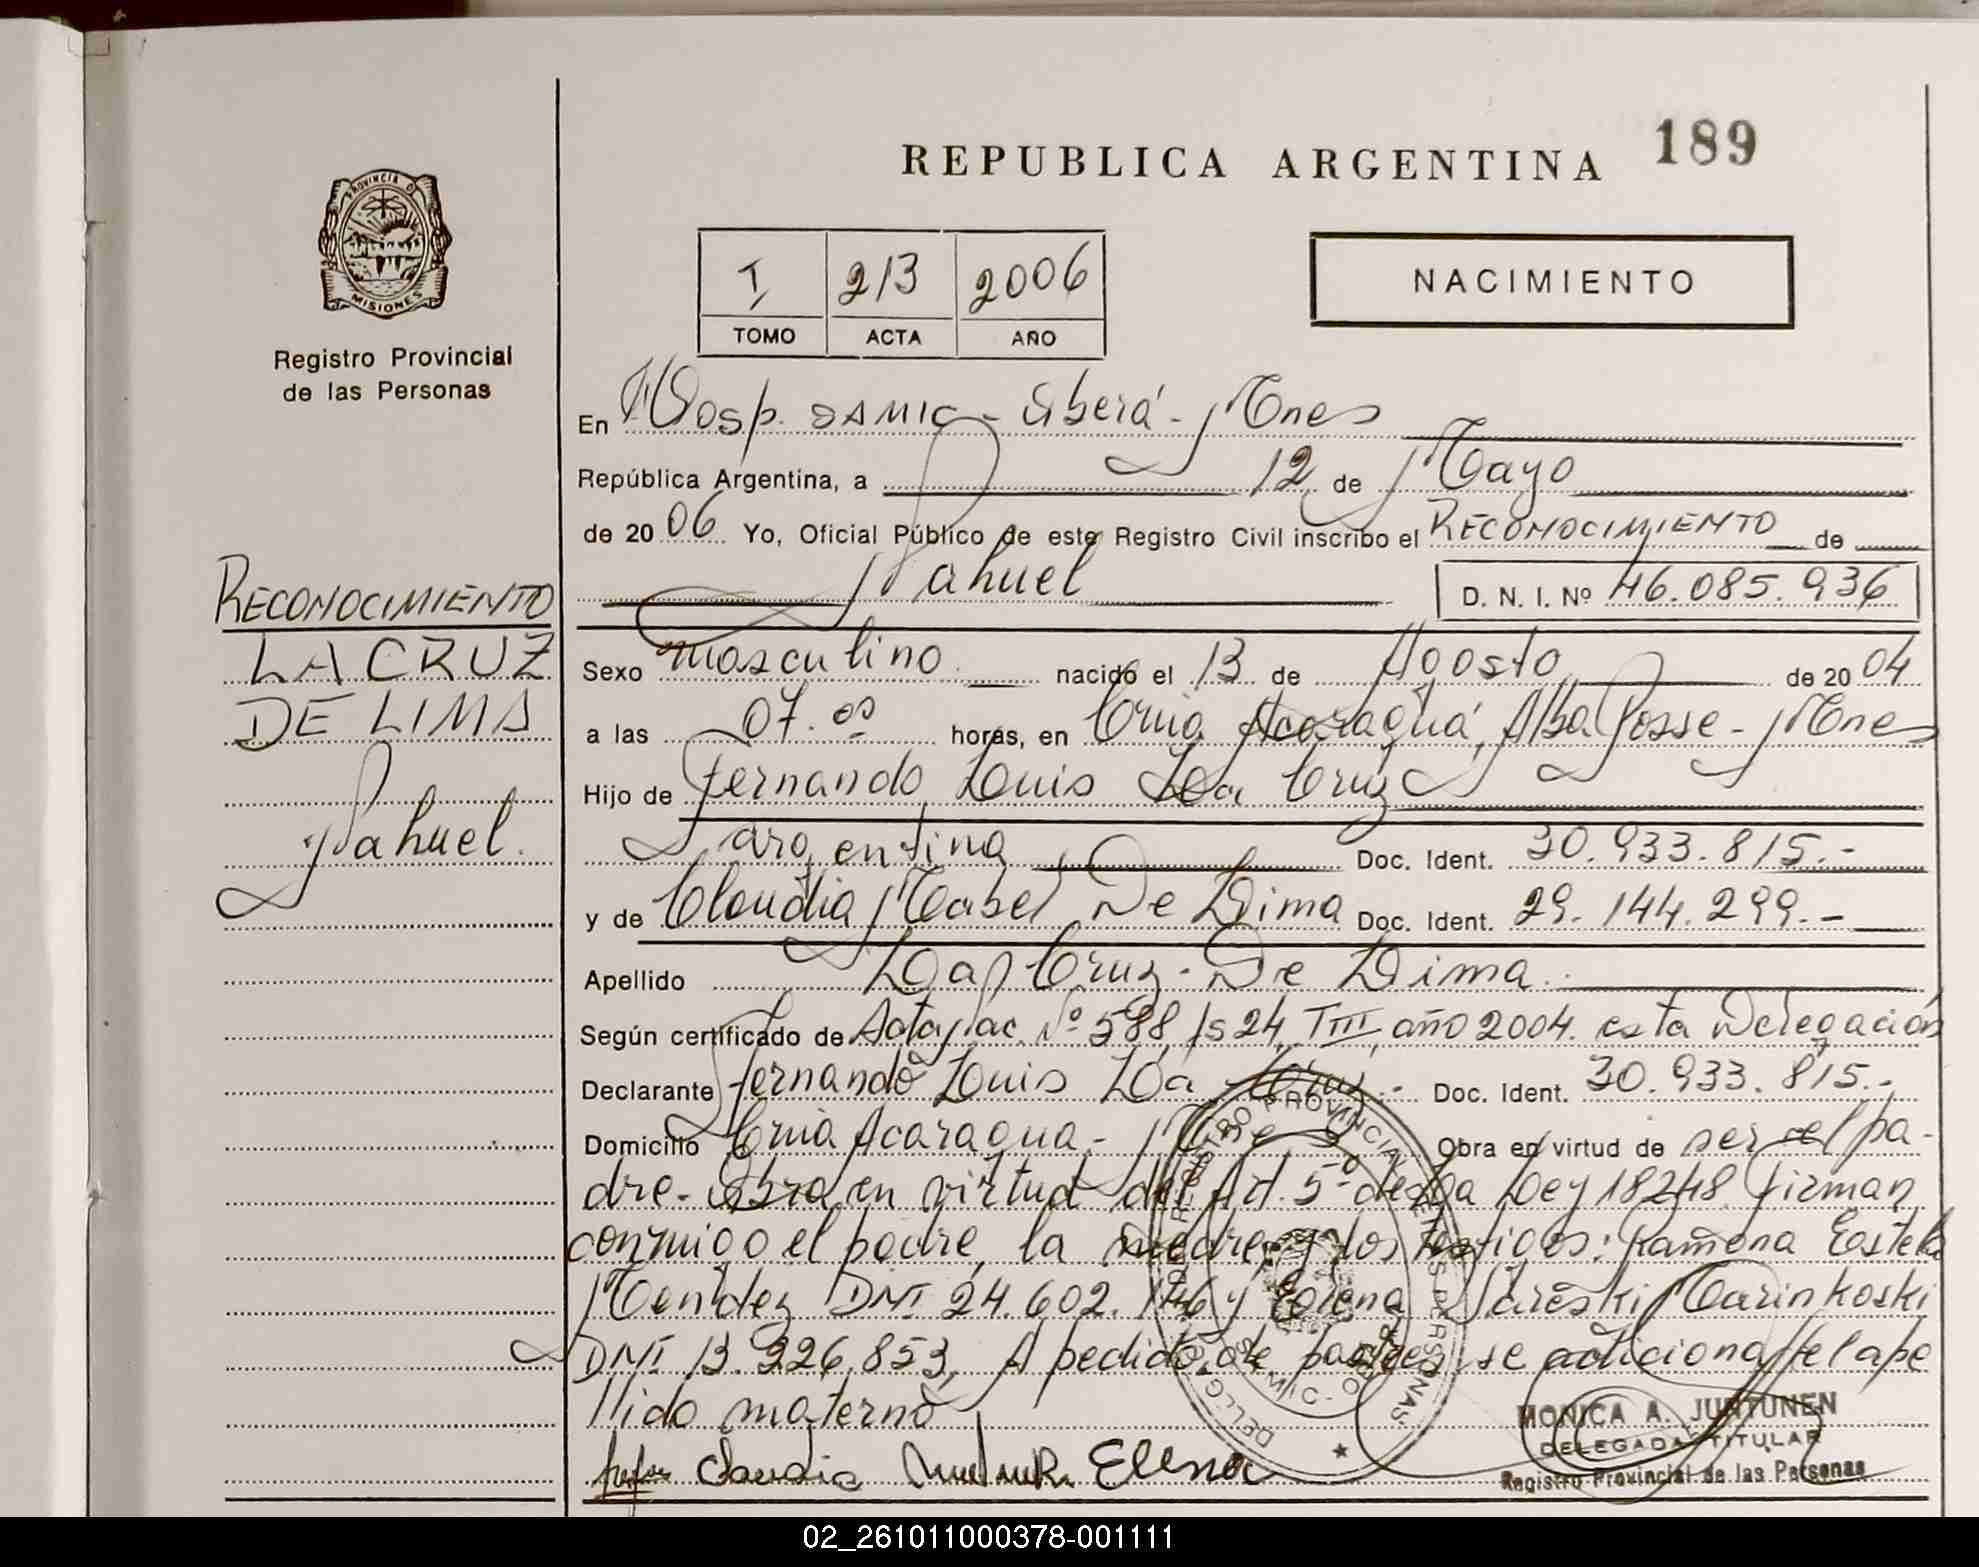 REPUBLICA ARGENTINA 189
PROVINCIA D
MISIONES
Registro Provincial
de las Personas
I 213 2006
TOMO ACTA AÑO
NACIMIENTO
En Hosp. SAMIC - Oberá - Mnes
República Argentina, a 12 de Mayo
de 2006 Yo, Oficial Público de este Registro Civil inscribo el RECONOCIMIENTO de
Nahuel D. N. I. Nº 46.085.936
RECONOCIMIENTO
LA CRUZ
DE LIMA
Nahuel.
Sexo masculino nacido el 13 de Agosto de 2004
a las 07.00 horas, en Cnia Acaraguá, Alba Posse - Mnes
Hijo de Fernando Luis La Cruz
argentina Doc. Ident. 30.933.815.-
y de Claudia Mabel De Lima Doc. Ident. 29.144.299.-
Apellido La Cruz - De Lima.
Según certificado de Acta Nac. Nº 588, Fs 24, T III, año 2004. esta Delegación
Declarante Fernando Luis La Cruz.- Doc. Ident. 30.933.815.-
Domicilio Cnia Acaragua - Obra en virtud de ser el pa-
dre - Obra en virtud del Art. 5º de la Ley 18248. Firman
conmigo el padre, la madre y los testigos: Ramona Estela
Mendez DNI 24.602.146 y Elena Mareski Marinkoski
DNI 13.226.853, A pedido de padres se adiciona el ape
llido materno
Claudia Elena
REGISTRO PROVINCIAL DE LAS PERSONAS
MONICA A. JUNTUNEN
DELEGADA TITULAR
Registro Provincial de las Personas
02_261011000378-001111